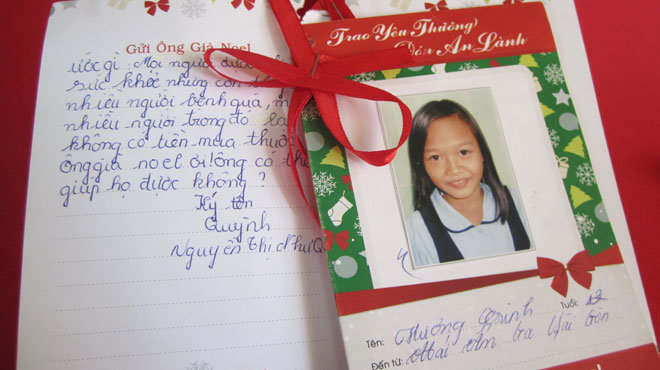 Gửi Ông Già Noel
ước gì. Mọi người được
sức khỏe nhưng còn
nhiều người bệnh quá,
nhiều người trong đó
không có tiền mua thuốc
ông già noel ơi! ông có thể
giúp họ được không?
Ký tên
Quỳnh
Nguyễn Thị Như
Trao Yêu Thương
Đón An Lành
Tên:
Tuổi: 12
Đến từ: Mái Ấm